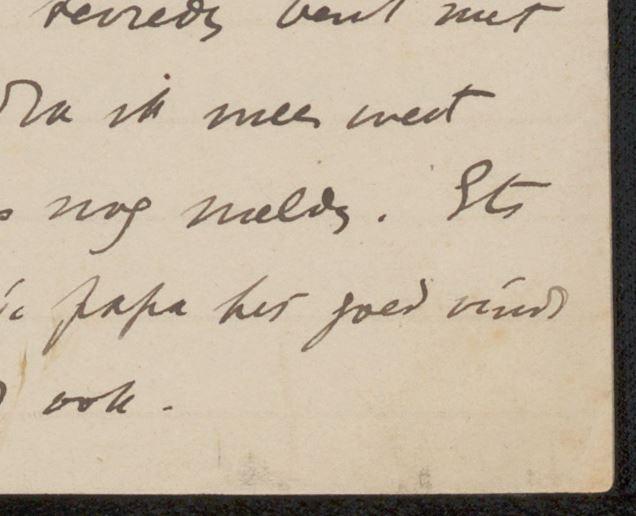 tevreden bent met
dra ik meer weet
nog melden. Ets
papa het goed vindt
ook.